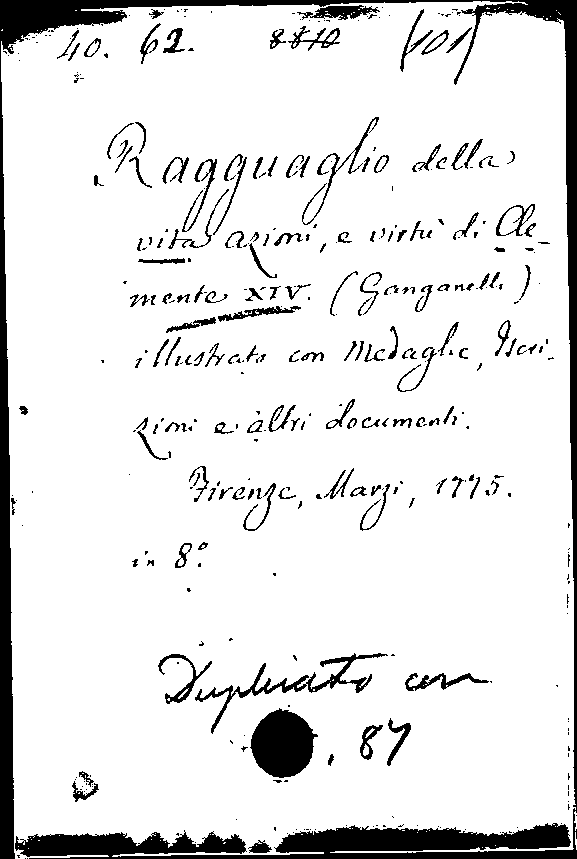 40. 62. 8810 (101)
Ragguaglio della
vita azioni, e virtù di Cle-
mente XIV. (Ganganelli)
illustrato con Medaglie, Iscri-
zioni e altri documenti.
Firenze, Marzi, 1775.
in 8°.
Duplicato con
. 87